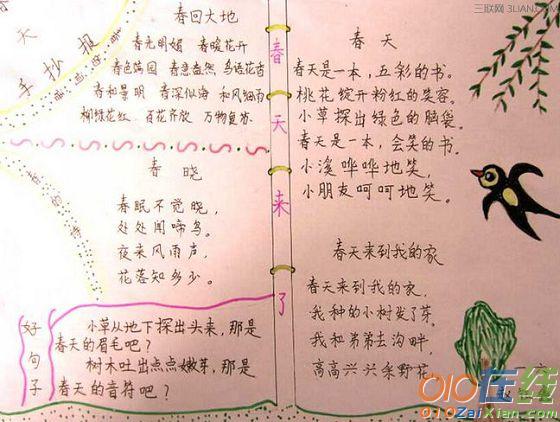 三联网 3LIAN.COM
天
手抄报
春回大地
春光明媚 春暖花开
春色满园 春意盎然 鸟语花香
春和景明 春深似海 和风细雨
柳绿花红 百花齐放 万物复苏
春晓
春眠不觉晓，
处处闻啼鸟。
夜来风雨声，
花落知多少。
好句子
小草从地下探出头来，那是
春天的眉毛吧？
树木吐出点点嫩芽，那是
春天的音符吧？
春天来了
春天
春天是一本，五彩的书。
桃花绽开粉红的笑容。
小草探出绿色的脑袋。
春天是一本，会笑的书。
小溪哗哗地笑，
小朋友呵呵地笑。
春天来到我的家
春天来到我的家，
我种的小树发了芽。
我和弟弟去沟畔，
高高兴兴采野花
010在线
010ZaiXian.com